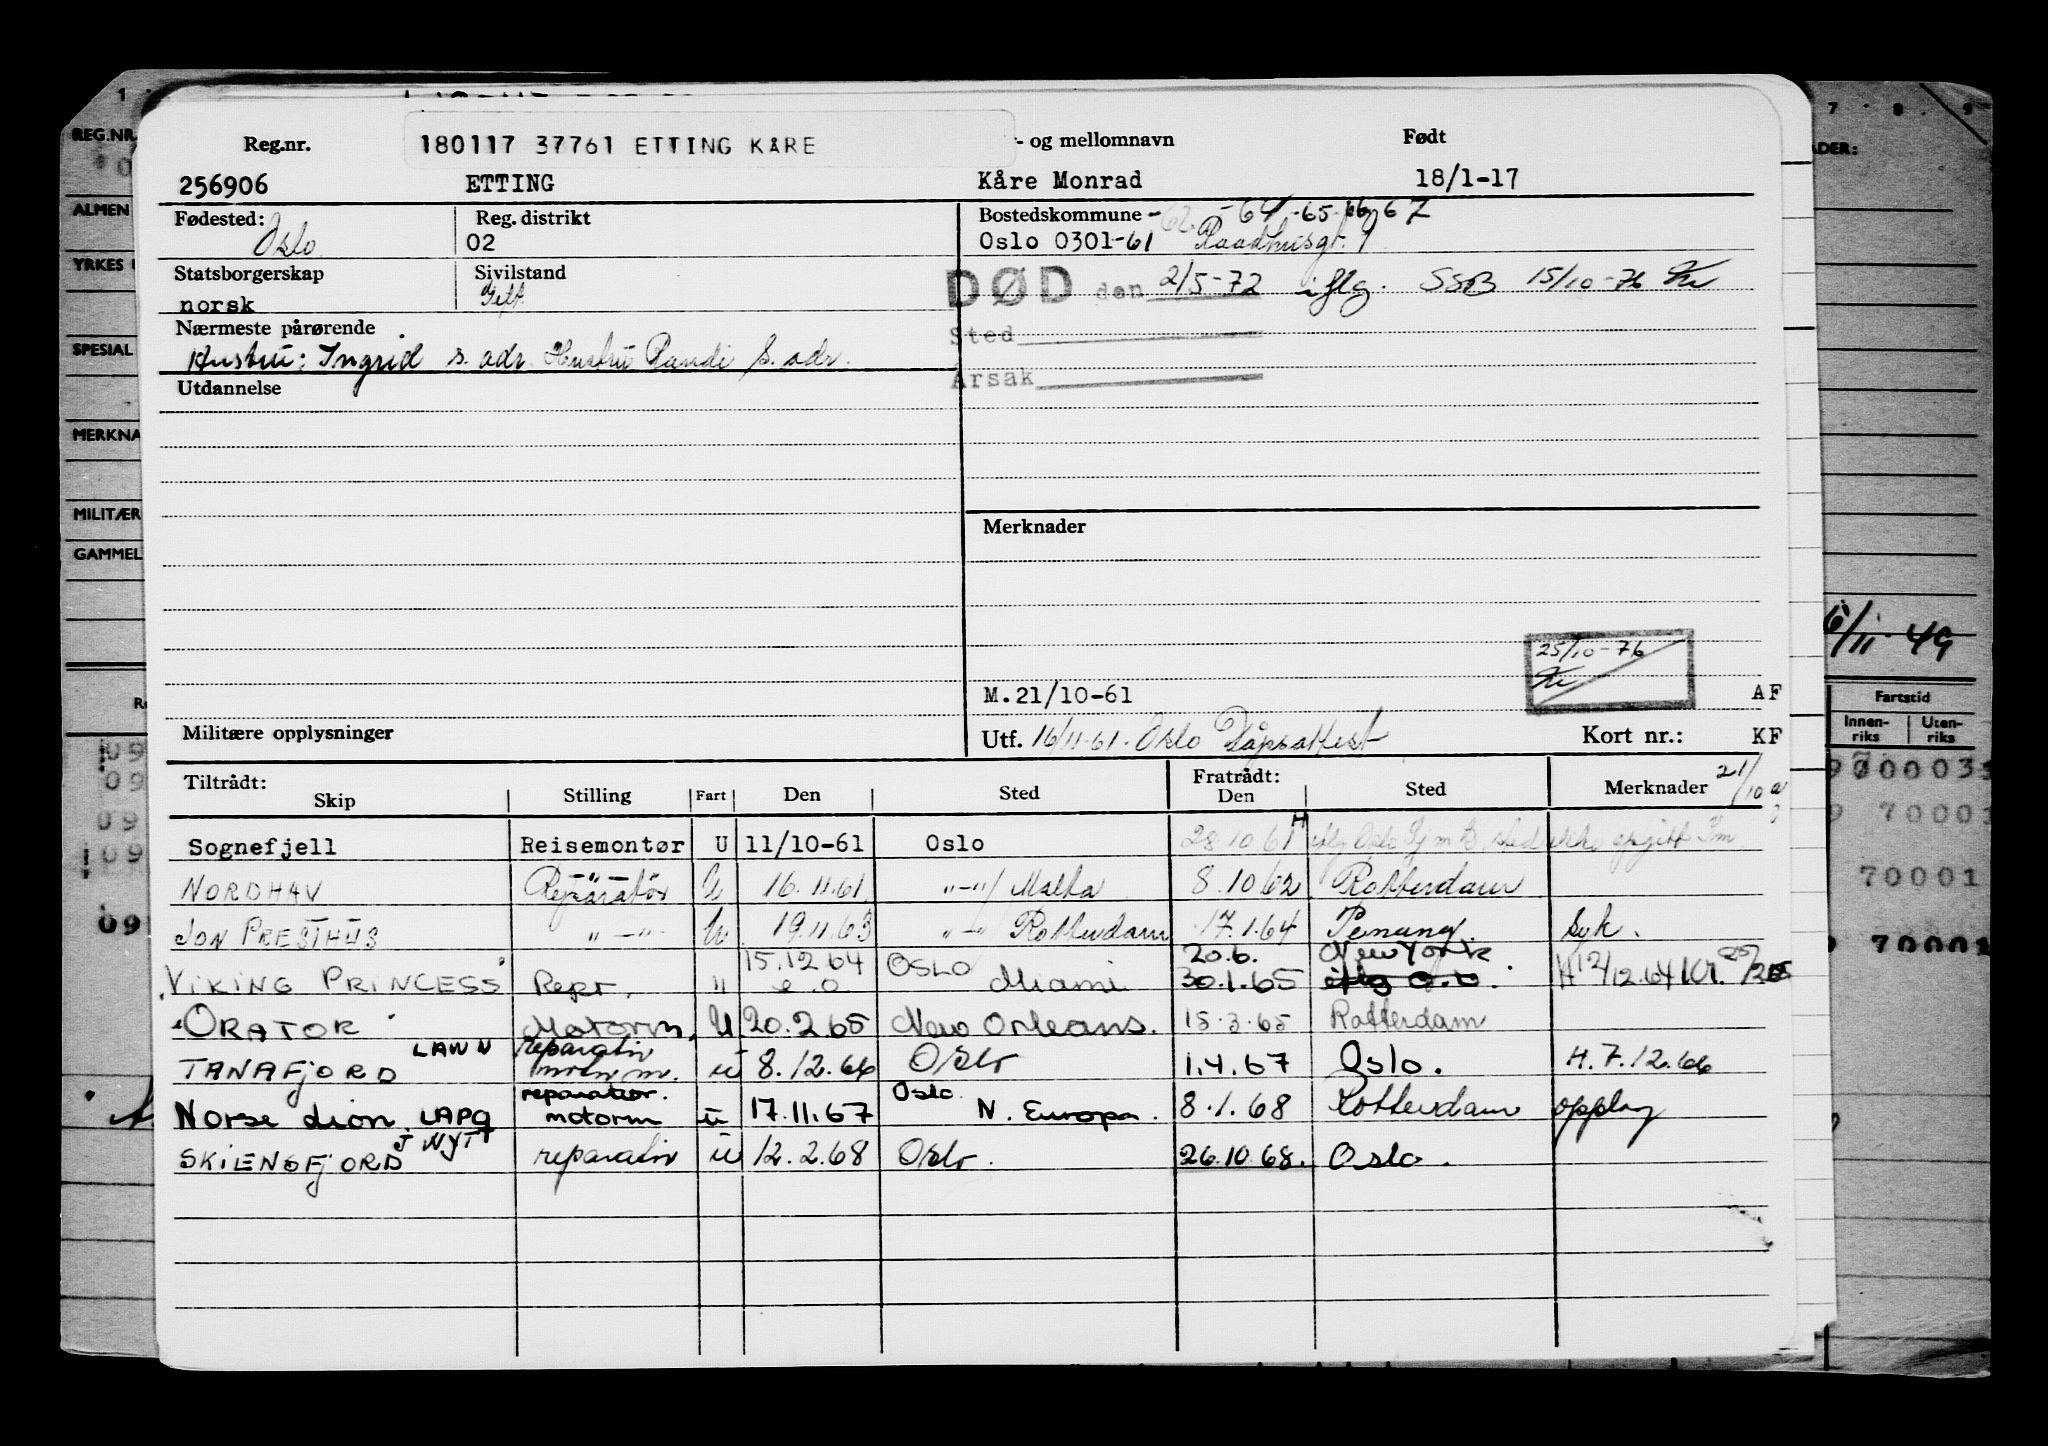 Reg.nr. 180117 37761 ETTING KÅRE - og mellomnavn Født
256906 ETTING Kåre Monrad 18/1-17
Fødested: Oslo Reg. distrikt 02
Bostedskommune -62 -64 -65-66 67
Oslo 0301-61 Raadhusgt. 1
Statsborgerskap norsk Sivilstand Gift
DØD den 2/5-72 iflg. SSB 15/10-76
Sted
Årsak
Nærmeste pårørende
Hustru: Ingrid s. adr. Hustru Randi s. adr.
Utdannelse
Merknader
25/10-76
M.21/10-61 AF
Militære opplysninger
Utf. 16/11-61. Oslo Kort nr.: KF
Tiltrådt: Fratrådt: 21/10
Skip Stilling Fart Den Sted Den Sted Merknader
Sognefjell Reisemontør U 11/10-61 Oslo 28.10.61 H
NORDHAV Reparatør U 16.11.61 "-"/ Malta 8.10.62 Rotterdam
JON PRESTHUS "-" U 19.11.63 "-" Rotterdam 17.1.64 Penang. Syk.
15.12.64 OSLO 20.6. New York
"VIKING PRINCESS" Repr. " e.o. Miami 30.1.65 H 12/12.64
"ORATOR" Motorm. U 20.2.65 New Orleans. 15.3.65 Rotterdam
TANAFJORD LAWN reparatør motorm. u 8.12.66 Oslo 1.4.67 Oslo. H.7.12.66
Norse Lion. LAPQ reparatør. motorm u 17.11.67 Oslo N. Europa. 8.1.68 Rotterdam opplag
SKIENSFJORD reparatør u 12.2.68 Oslo. 26.10.68. Oslo.
1
REG.NR.
ALMEN
YRKES
SPESIAL
MERKNA
MILITÆR
GAMMEL
09
09
09
09
09
7 8 9
ADER:
6/11-49
Fartstid
Innen-riks Uten-riks
70003
70001
70001
70001